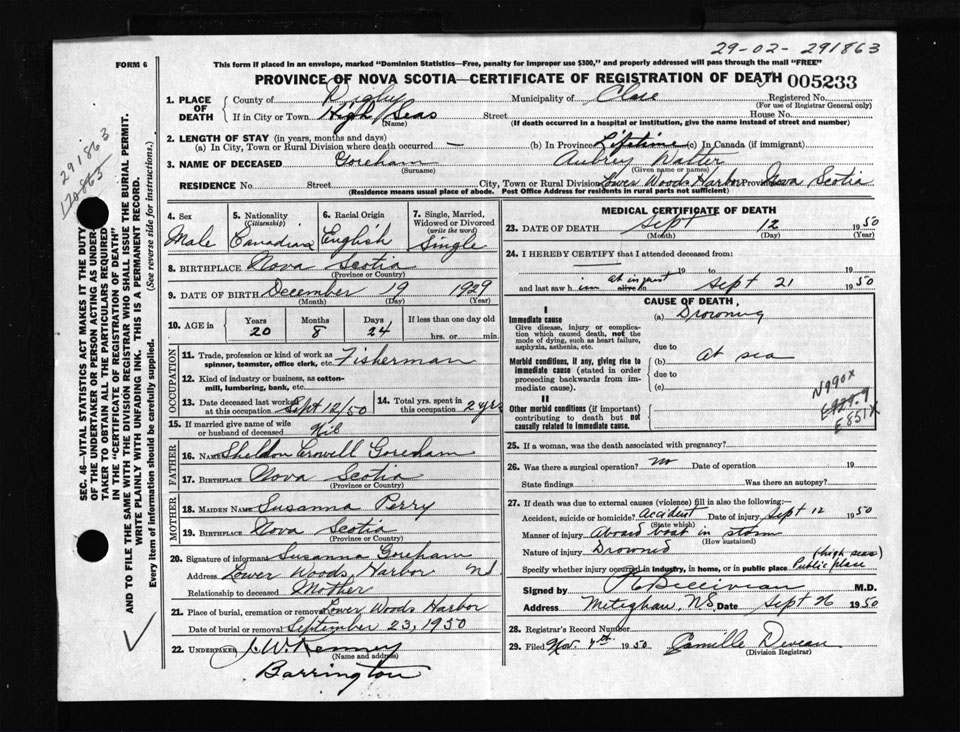 29-02-291863
FORM 6
This form if placed in an envelope, marked "Dominion Statistics—Free, penalty for improper use $300," and properly addressed will pass through the mail "FREE"
PROVINCE OF NOVA SCOTIA—CERTIFICATE OF REGISTRATION OF DEATH 005233
1. PLACE OF DEATH
County of Digby Municipality of Clare Registered No.
(For use of Registrar General only)
If in City or Town High Seas Street House No.
(Name) (If death occurred in a hospital or institution, give the name instead of street and number)
2. LENGTH OF STAY (in years, months and days)
(a) In City, Town or Rural Division where death occurred — (b) In Province Lifetime (c) In Canada (if immigrant)
3. NAME OF DECEASED Goreham Aubrey Walter
(Surname) (Given name or names)
RESIDENCE No. Street City, Town or Rural Division Lower Woods Harbor Province Nova Scotia
(Residence means usual place of abode. Post Office Address for residents in rural parts not sufficient)
4. Sex Male
5. Nationality (Citizenship) Canadian
6. Racial Origin English
7. Single, Married, Widowed or Divorced (write the word) Single
8. BIRTHPLACE Nova Scotia
(Province or Country)
9. DATE OF BIRTH December 19 1929
(Month) (Day) (Year)
10. AGE in Years Months Days If less than one day old
20 8 24 hrs. or min.
OCCUPATION
11. Trade, profession or kind of work as spinner, teamster, office clerk, etc. Fisherman
12. Kind of industry or business, as cotton-mill, lumbering, bank, etc.
13. Date deceased last worked at this occupation Sept 12/50
14. Total yrs. spent in this occupation 2 yrs
15. If married give name of wife or husband of deceased Nil
FATHER
16. Name Sheldon Crowell Goreham
17. Birthplace Nova Scotia
(Province or Country)
MOTHER
18. Maiden Name Susanna Perry
19. Birthplace Nova Scotia
(Province or Country)
20. Signature of informant Susanna Goreham
Address Lower Woods Harbor NS
Relationship to deceased Mother
21. Place of burial, cremation or removal Lower Woods Harbor
Date of burial or removal September 23, 1950
22. Undertaker J. W. Kenney
(Name and address)
Barrington
MEDICAL CERTIFICATE OF DEATH
23. DATE OF DEATH Sept 12 1950
(Month) (Day) (Year)
24. I HEREBY CERTIFY that I attended deceased from:
19 to 19
and last saw him alive on at inquest Sept 21 1950
CAUSE OF DEATH
I
Immediate cause (a) Drowning
Give disease, injury or complication which caused death, not the mode of dying, such as heart failure, asphyxia, asthenia, etc.
due to
Morbid conditions, if any, giving rise to immediate cause (stated in order proceeding backwards from immediate cause).
(b) At sea
due to
(c)
II
Other morbid conditions (if important) contributing to death but not causally related to immediate cause.
N990X
E851X
25. If a woman, was the death associated with pregnancy?
26. Was there a surgical operation? no Date of operation 19
State findings Was there an autopsy?
27. If death was due to external causes (violence) fill in also the following:—
Accident, suicide or homicide? Accident Date of injury Sept 12 1950
(State which)
Manner of injury Aboard boat in storm
(How sustained)
Nature of injury Drowned (high seas)
Specify whether injury occurred in industry, in home, or in public place Public place
Signed by M.D.
Address Meteghan, NS. Date Sept 26 1950
28. Registrar's Record Number
29. Filed Nov. 7th. 1950 Camille
(Division Registrar)
SEC. 46—VITAL STATISTICS ACT MAKES IT THE DUTY
OF THE UNDERTAKER OR PERSON ACTING AS UNDER-
TAKER TO OBTAIN ALL THE PARTICULARS REQUIRED
IN THE "CERTIFICATE OF REGISTRATION OF DEATH"
AND TO FILE THE SAME WITH THE DIVISION REGISTRAR WHO SHALL ISSUE THE BURIAL PERMIT.
WRITE PLAINLY WITH UNFADING INK. THIS IS A PERMANENT RECORD.
Every item of information should be carefully supplied. (See reverse side for instructions.)
291863